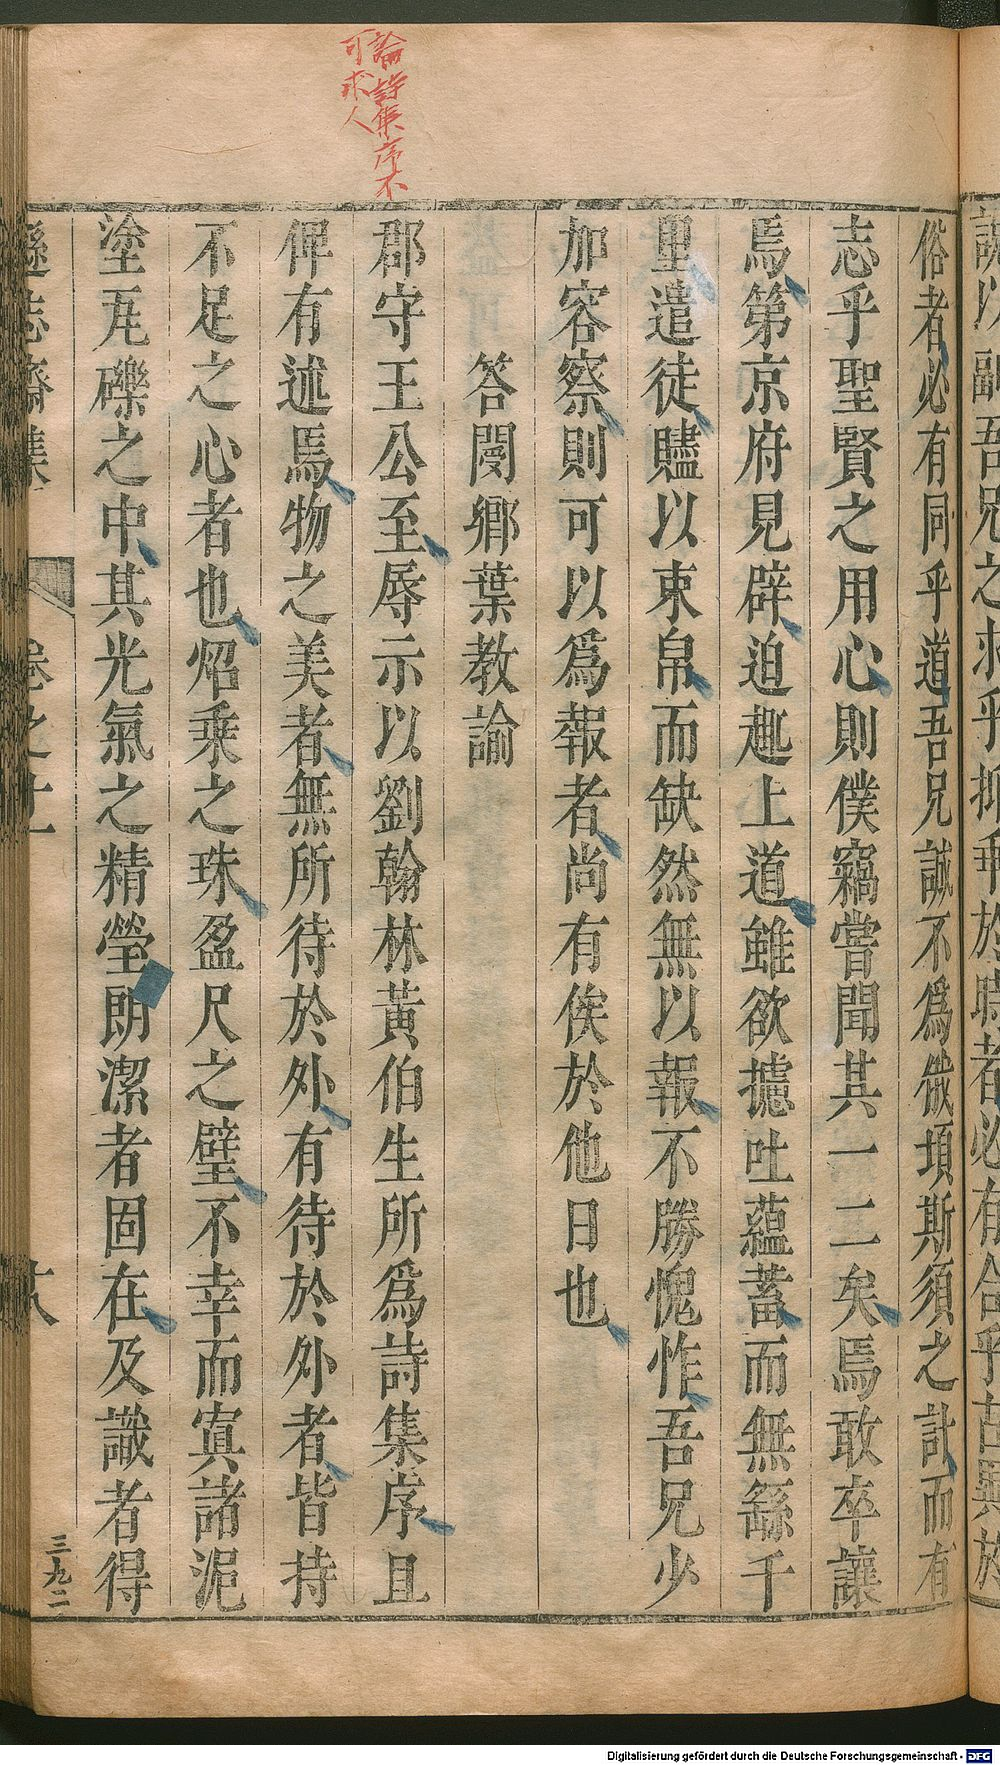 論詩集序不
可求人
俗者必有同乎道吾兄誠不爲儆項斯須之計而有
志乎聖賢之用心則僕竊嘗聞其一二矣焉敢卒讓
焉第京府見辟迫趣上道雖欲攄吐蘊蓄而無繇千
里遣徒贐以束帛而缺然無以報不勝愧怍吾兄少
加容察則可以爲報者尚有俟於他日也
答閿鄉葉教諭
郡守王公至辱示以劉翰林黃伯生所爲詩集序且
俾有述焉物之美者無所待於外有待於外者皆持
不足之心者也炤乘之珠盈尺之璧不幸而寘諸泥
塗瓦礫之中其光氣之精瑩朗潔者固在及識者得
遜志齋集
卷之十一
十八
三九二
Digitalisierung gefördert durch die Deutsche Forschungsgemeinschaft - DFG